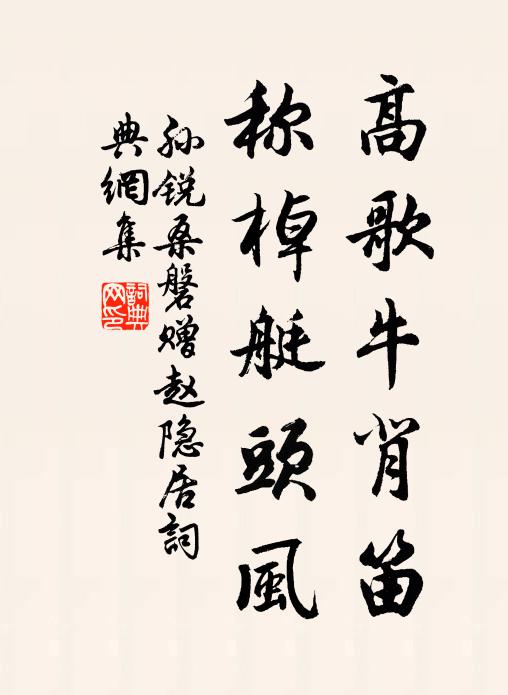 高歌牛背笛
称棹艇頭風
孙锐桑磐赠赵隐居詞
典網集
詞典网印